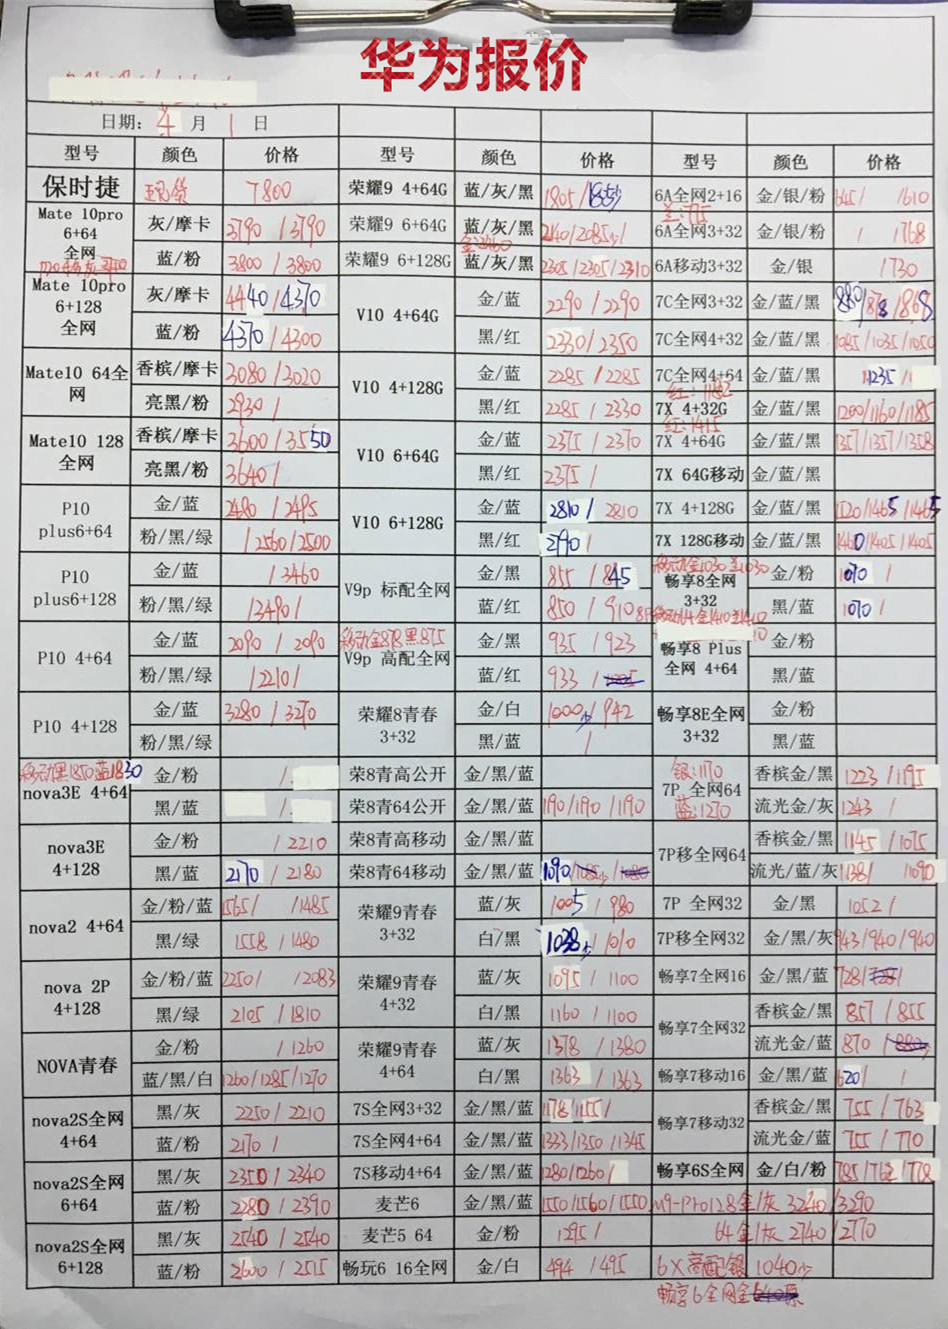 华为报价
日期： 4 月 1 日
型号 颜色 价格 型号 颜色 价格 型号 颜色 价格
保时捷 现货 7800 荣耀9 4+64G 蓝/灰/黑 1805/1855 6A全网2+16 金/银/粉 645/ /610
Mate 10pro 6+64 全网 灰/摩卡 3790/3790 荣耀9 6+64G 蓝/灰/黑 2140/2085/ 6A全网3+32 金/银/粉 / /768
蓝/粉 3800/3800 荣耀9 6+128G 蓝/灰/黑 2305/2305/2310 6A移动3+32 金/银 /730
Mate 10pro 6+128 全网 灰/摩卡 4440/4370 V10 4+64G 金/蓝 2290/2290 7C全网3+32 金/蓝/黑 880/878/868
蓝/粉 4370/4300 黑/红 2330/2350 7C全网4+32 金/蓝/黑 1085/1035/1050
Mate10 64全网 香槟/摩卡 3080/3020 V10 4+128G 金/蓝 2285/2285 7C全网4+64 金/蓝/黑 1235/
亮黑/粉 2930/ 黑/红 2285/2330 红:1182 7X 4+32G 金/蓝/黑 1200/1160/1185
Mate10 128全网 香槟/摩卡 3600/3550 V10 6+64G 金/蓝 2375/2370 红:1415 7X 4+64G 金/蓝/黑 1357/1357/1358
亮黑/粉 3640/ 黑/红 2375/ 7X 64G移动 金/蓝/黑
P10 plus6+64 金/蓝 2480/2485 V10 6+128G 金/蓝 2810/2810 7X 4+128G 金/蓝/黑 1520/1465/1465
粉/黑/绿 /2560/2500 黑/红 2790/ 7X 128G移动 金/蓝/黑 1460/1405/1405
P10 plus6+128 金/蓝 /3460 V9p 标配全网 金/黑 855/845 移动金1030 兰1030 畅享8全网 3+32 金/粉 1070/
粉/黑/绿 /3490/ 蓝/红 850/910 黑/蓝 1070/
P10 4+64 金/蓝 2090/2090 移动金878黑875 V9p 高配全网 金/黑 935/923 畅享8 Plus 全网 4+64 金/粉
粉/黑/绿 /2210/ 蓝/红 933/ 黑/蓝
P10 4+128 金/蓝 3280/3270 荣耀8青春 3+32 金/白 1000/942 畅享8E全网 3+32 金/粉
粉/黑/绿 黑/蓝 / 黑/蓝
移动黑1850蓝1830 nova3E 4+64 金/粉 / 荣8青高公开 金/黑/蓝 银:1170 7P 全网64 蓝:1270 香槟金/黑 1223/1195
黑/蓝 / 荣8青64公开 金/黑/蓝 1190/1190/1190 流光金/灰 1243/
nova3E 4+128 金/粉 /2210 荣8青高移动 金/黑/蓝 7P移全网64 香槟金/黑 1145/1075
黑/蓝 2170/2180 荣8青64移动 金/黑/蓝 1090/ 流光/蓝/灰 1138/ /1090
nova2 4+64 金/粉/蓝 1565/ /1485 荣耀9青春 3+32 蓝/灰 1005/980 7P 全网32 金/黑 1052/
黑/绿 1558/1480 白/黑 1038/1010 7P移全网32 金/黑/灰 943/940/940
nova 2P 4+128 金/粉/蓝 2250/ /2083 荣耀9青春 4+32 蓝/灰 1095/1100 畅享7全网16 金/黑/蓝 728/
黑/绿 2105/1810 白/黑 1160/1100 畅享7全网32 香槟金/黑 857/855
NOVA青春 金/粉 /1260 荣耀9青春 4+64 蓝/灰 1378/1380 流光金/蓝 870/
蓝/黑/白 1260/1285/1270 白/黑 1363/1363 畅享7移动16 金/黑/蓝 620/ /
nova2S全网 4+64 黑/灰 2250/2210 7S全网3+32 金/黑/蓝 1178/1155/ 畅享7移动32 香槟金/黑 755/763
蓝/粉 2170/ 7S全网4+64 金/黑/蓝 1333/1350/1345 流光金/蓝 755/770
nova2S全网 6+64 黑/灰 2350/2340 7S移动4+64 金/黑/蓝 1280/1260/ 畅享6S全网 金/白/粉 785/762/778
蓝/粉 2280/2390 麦芒6 金/黑/蓝 1550/1560/1550 M9-Pro128金/灰 3240/3290
nova2S全网 6+128 黑/灰 2540/2540 麦芒5 64 金/粉 1295/ 64金/灰 2740/2770
蓝/粉 2600/2515 畅玩6 16全网 金/白 494/495 6X高配银 1040
畅享6全网金